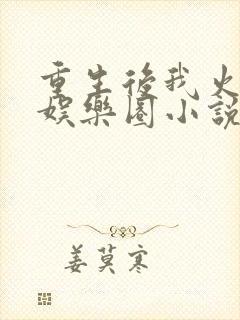 重生後我火
娛樂圈小說
姜莫寒